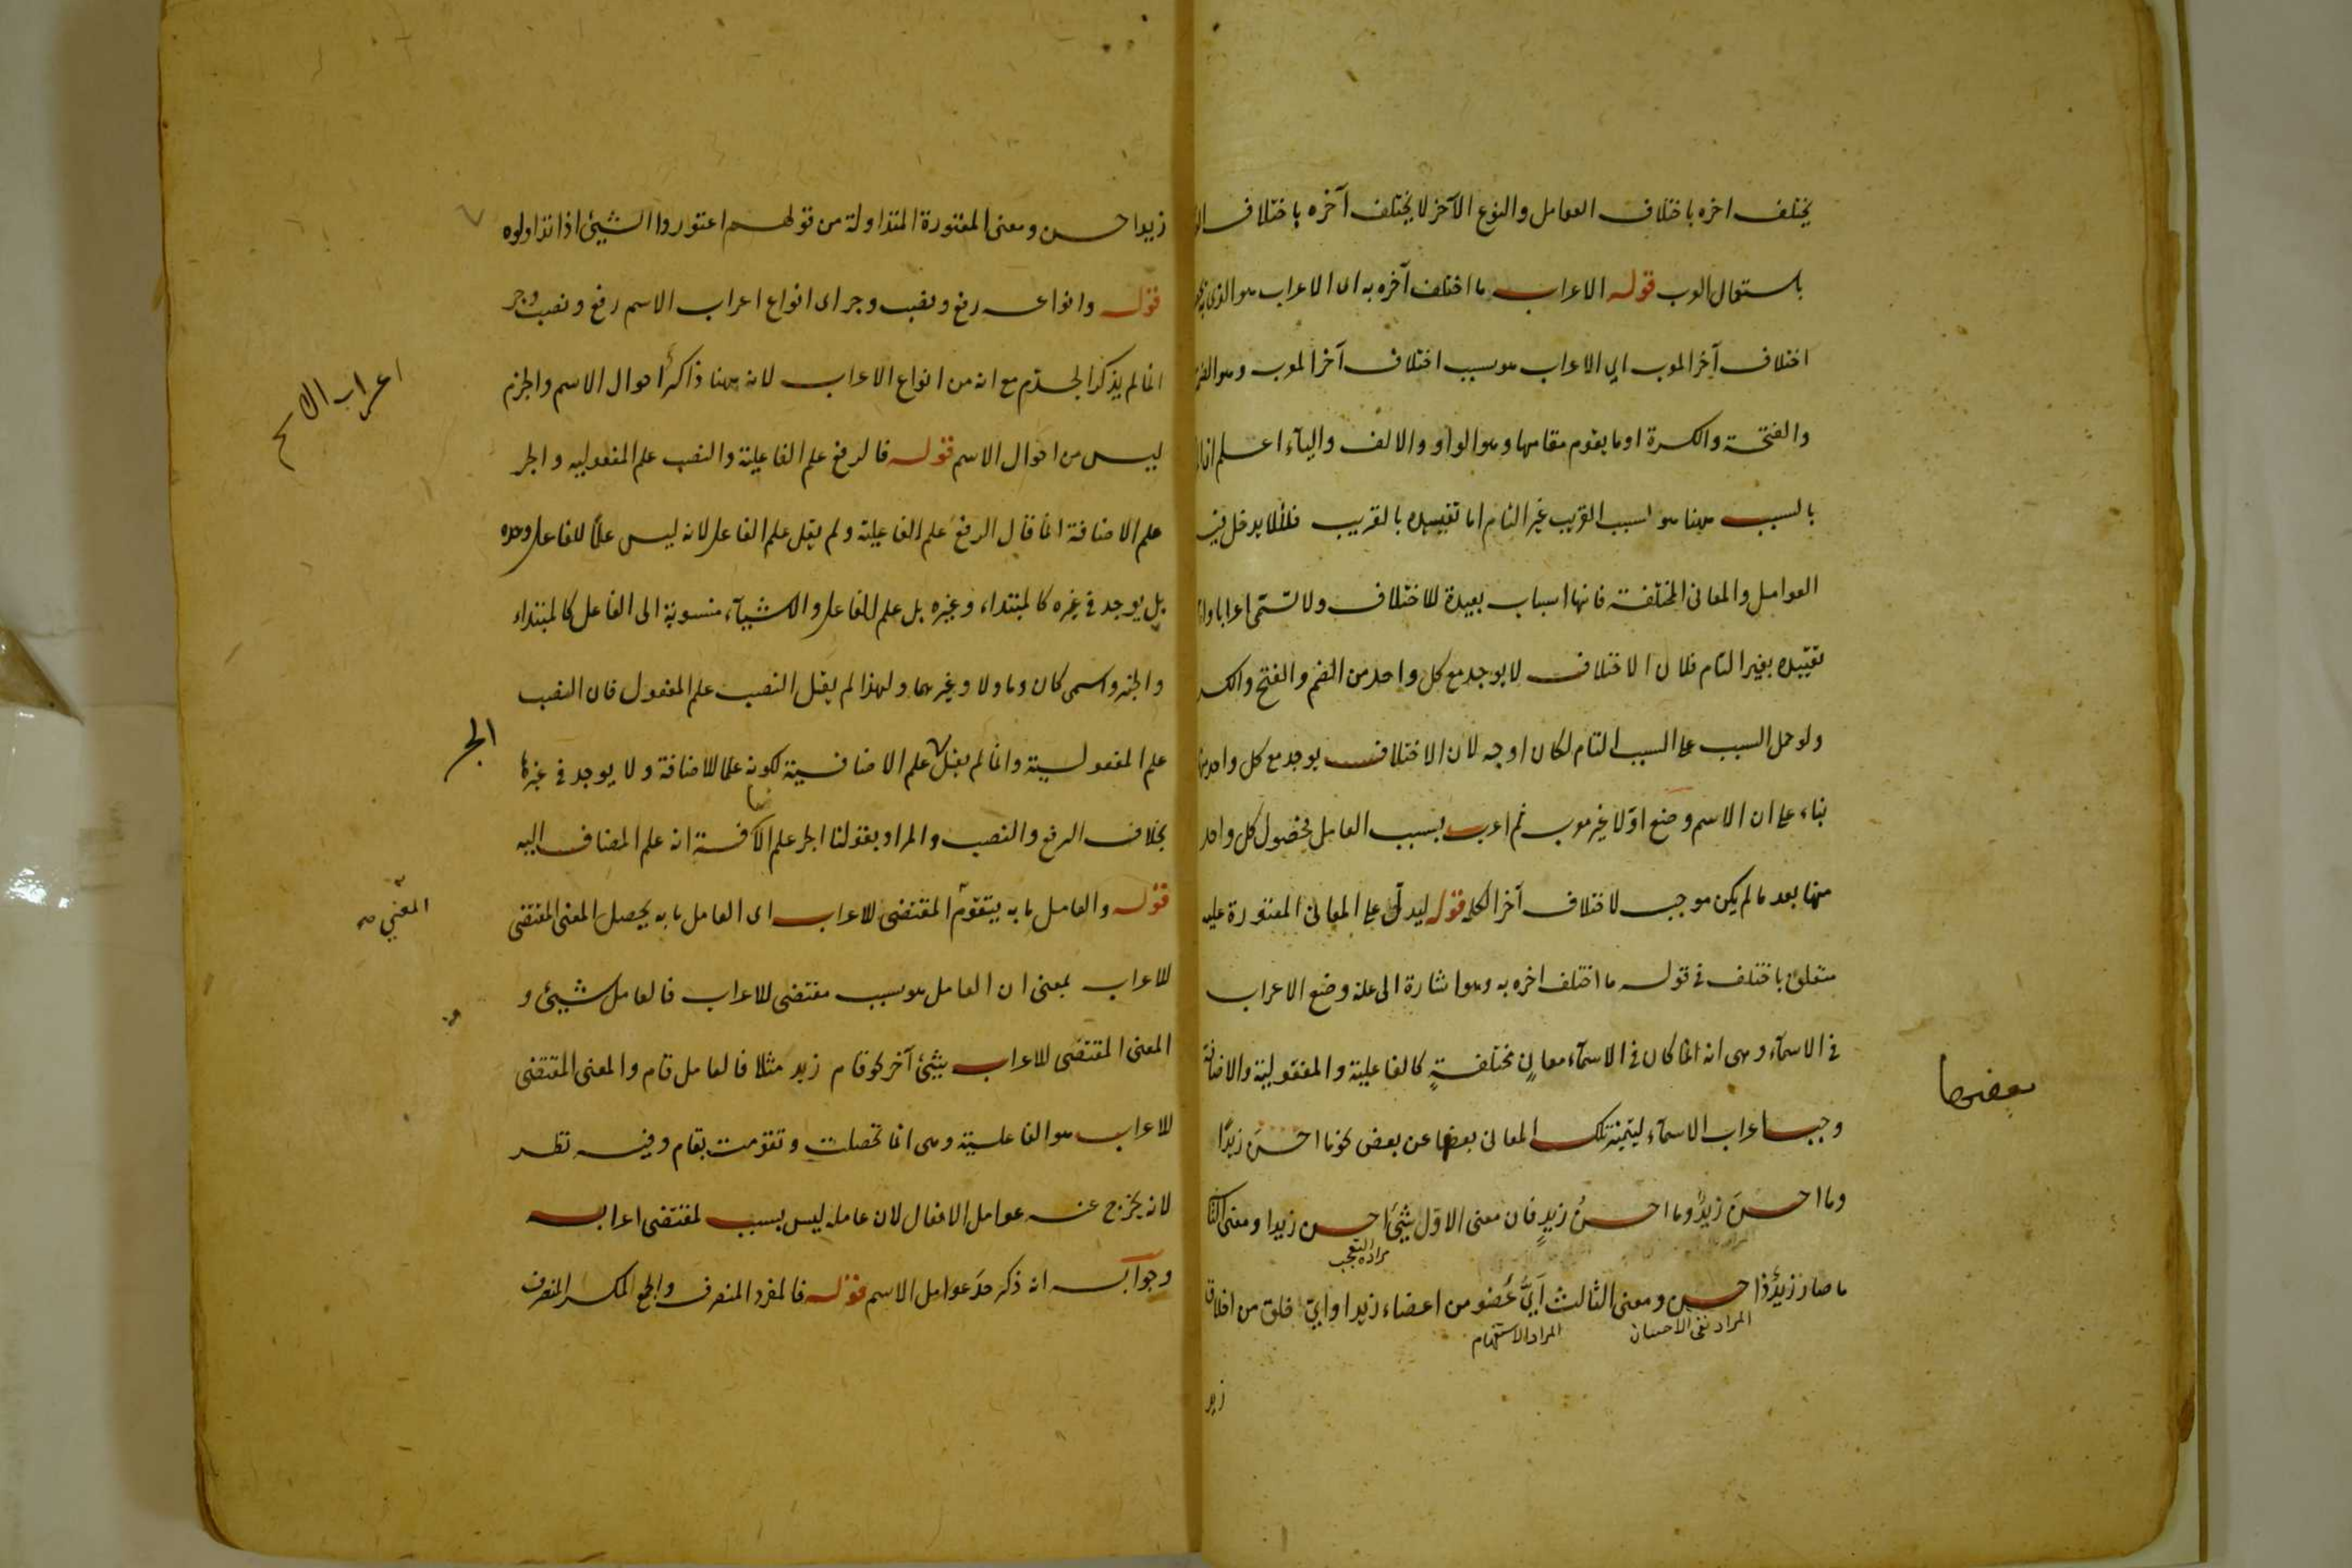 يختلف اخره باختلاف العوامل والنوع الآخر لا يختلف آخره باختلاف
باستعمال العرب قوله الاعراب ما اختلف آخره به اى الاعراب هو الذى
اختلاف آخر المعرب اى الاعراب هو سبب اختلاف آخر المعرب وهو
والفتحة والكسرة او ما يقوم مقامها وهو الواو والالف واليآء اعلم ان
بالسبب ههنا هو السبب القريب غير التام اما تقييده بالقريب فلئلا يدخل فيه
العوامل والمعانى المختلفة فانها اسباب بعيدة للاختلاف ولا تسمّى اعرابا واما
تقييده بغير التام فلان الاختلاف لا يوجد مع كل واحد من الضم والفتح والكسر
ولو حمل السبب على السبب التام لكان اوجه لان الاختلاف يوجد مع كل واحد منها
بناء على ان الاسم وضع اوّلا غير معرب ثم اعرب بسبب العامل فحصول كل واحد
منها بعد ما لم يكن موجب لاختلاف آخر الكلمة قوله ليدلّ على المعانى المعتورة عليه
متعلق باختلف فى قوله ما اختلف اخره به وهو اشارة الى علة وضع الاعراب
فى الاسمآء وهى انه لما كان فى الاسمآء معانٍ مختلفةٍ كالفاعلية والمفعولية والاضافة
وجب اعراب الاسمآء ليتميز تلك المعانى بعضها عن بعض نحو ما احسنَ زيدًا
بعضها
وما احسنَ زيدٌ وما احسنُ زيدٍ فان معنى الاوّل شيئ احسن زيدا ومعنى الثا
مراده التعجب
ما صار زيدٌ ذا حسن ومعنى الثالث اَىُّ عُضو من اعضاء زيد او اىّ خلق من اخلاق
المراد نفى الاحسان
المراد الاستفهام
زيد
زيد احسن ومعنى المعتورة المتداولة من قولهم اعتوروا الشيئ اذا تداولوه
قوله وانواعه رفع ونصب وجر اى انواع اعراب الاسم رفع ونصب وجر
انما لم يذكر الجزم مع انه من انواع الاعراب لانه ههنا ذاكرٌ احوال الاسم والجزم
اعراب الاسم
ليس من احوال الاسم قوله فالرفع علم الفاعلية والنصب علم المفعوليه والجر
علم الاضافة انما قال الرفع علم الفاعلية ولم يقل علم الفاعل لانه ليس علمًا للفاعل وحده
بل يوجد فى غيره كالمبتداء وغيره بل علم للفاعل والاشيآء منسوبة الى الفاعل كالمبتداء
والخبر واسمى كان وما ولا وغيرهما ولهذا لم يقل النصب علم المفعول فان النصب
علم المفعولسية وانما لم يقل علم الاضافسية لكونه علما للاضافة ولا يوجد فى غيرها
الجر
بخلاف الرفع والنصب والمراد بقولنا الجر علم الاضافة انه علم المضاف اليه
قوله والعامل ما به يتقوّم المقتضى للاعراب اى العامل ما به يحصل المعنى المقتضى
المعنى
للاعراب بمعنى ان العامل هو سبب مقتضى للاعراب فالعامل شيئ و
المعنى المقتضى للاعراب شيئ آخر نحو قام زيد مثلا فالعامل قام والمعنى المقتضى
للاعراب هو الفاعلسية وهى انما تحصلت وتقومت بقام وفيه نظر
لانه يخرج عنه عوامل الافعال لان عامله ليس بسبب لمقتضى اعرابه
وجوابه انه ذكر حدّ عوامل الاسم قوله فالمفرد المنصرف والجمع المكسر المنصرف